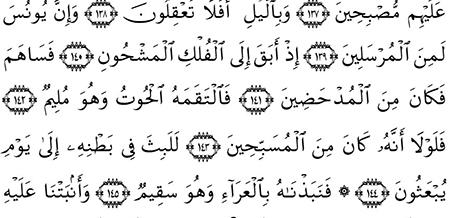 عَلَيْهِم مُّصْبِحِينَ ﴿١٣٧﴾ وَبِٱلَّيْلِ أَفَلَا تَعْقِلُونَ ﴿١٣٨﴾ وَإِنَّ يُونُسَ
لَمِنَ ٱلْمُرْسَلِينَ ﴿١٣٩﴾ إِذْ أَبَقَ إِلَى ٱلْفُلْكِ ٱلْمَشْحُونِ ﴿١٤٠﴾ فَسَاهَمَ
فَكَانَ مِنَ ٱلْمُدْحَضِينَ ﴿١٤١﴾ فَٱلْتَقَمَهُ ٱلْحُوتُ وَهُوَ مُلِيمٌ ﴿١٤٢﴾
فَلَوْلَآ أَنَّهُۥ كَانَ مِنَ ٱلْمُسَبِّحِينَ ﴿١٤٣﴾ لَلَبِثَ فِى بَطْنِهِۦٓ إِلَىٰ يَوْمِ
يُبْعَثُونَ ﴿١٤٤﴾ * فَنَبَذْنَٰهُ بِٱلْعَرَآءِ وَهُوَ سَقِيمٌ ﴿١٤٥﴾ وَأَنۢبَتْنَا عَلَيْهِ